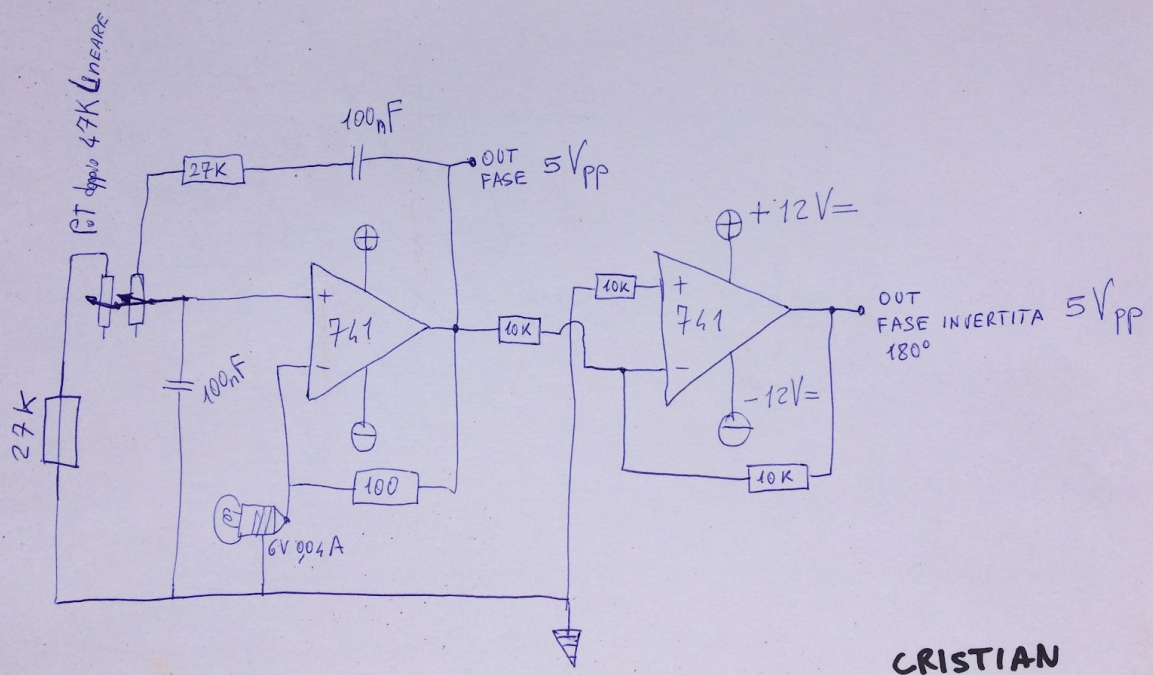 POT doppio 47K LINEARE
100nF
27K
OUT
FASE
5Vpp
+
+12V=
10K
+
741
-
+
741
-
10K
OUT
FASE INVERTITA 5Vpp
180°
100nF
27K
-
-12V=
10K
100
6V 0,04A
CRISTIAN